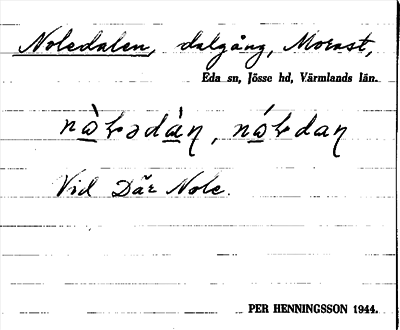 Noledalen, dalgång, Morast,
Eda sn, Jösse hd, Värmlands län.
nàⱡədàn̥, náⱡdan̥
Vid Där Nole.
PER HENNINGSSON 1944.